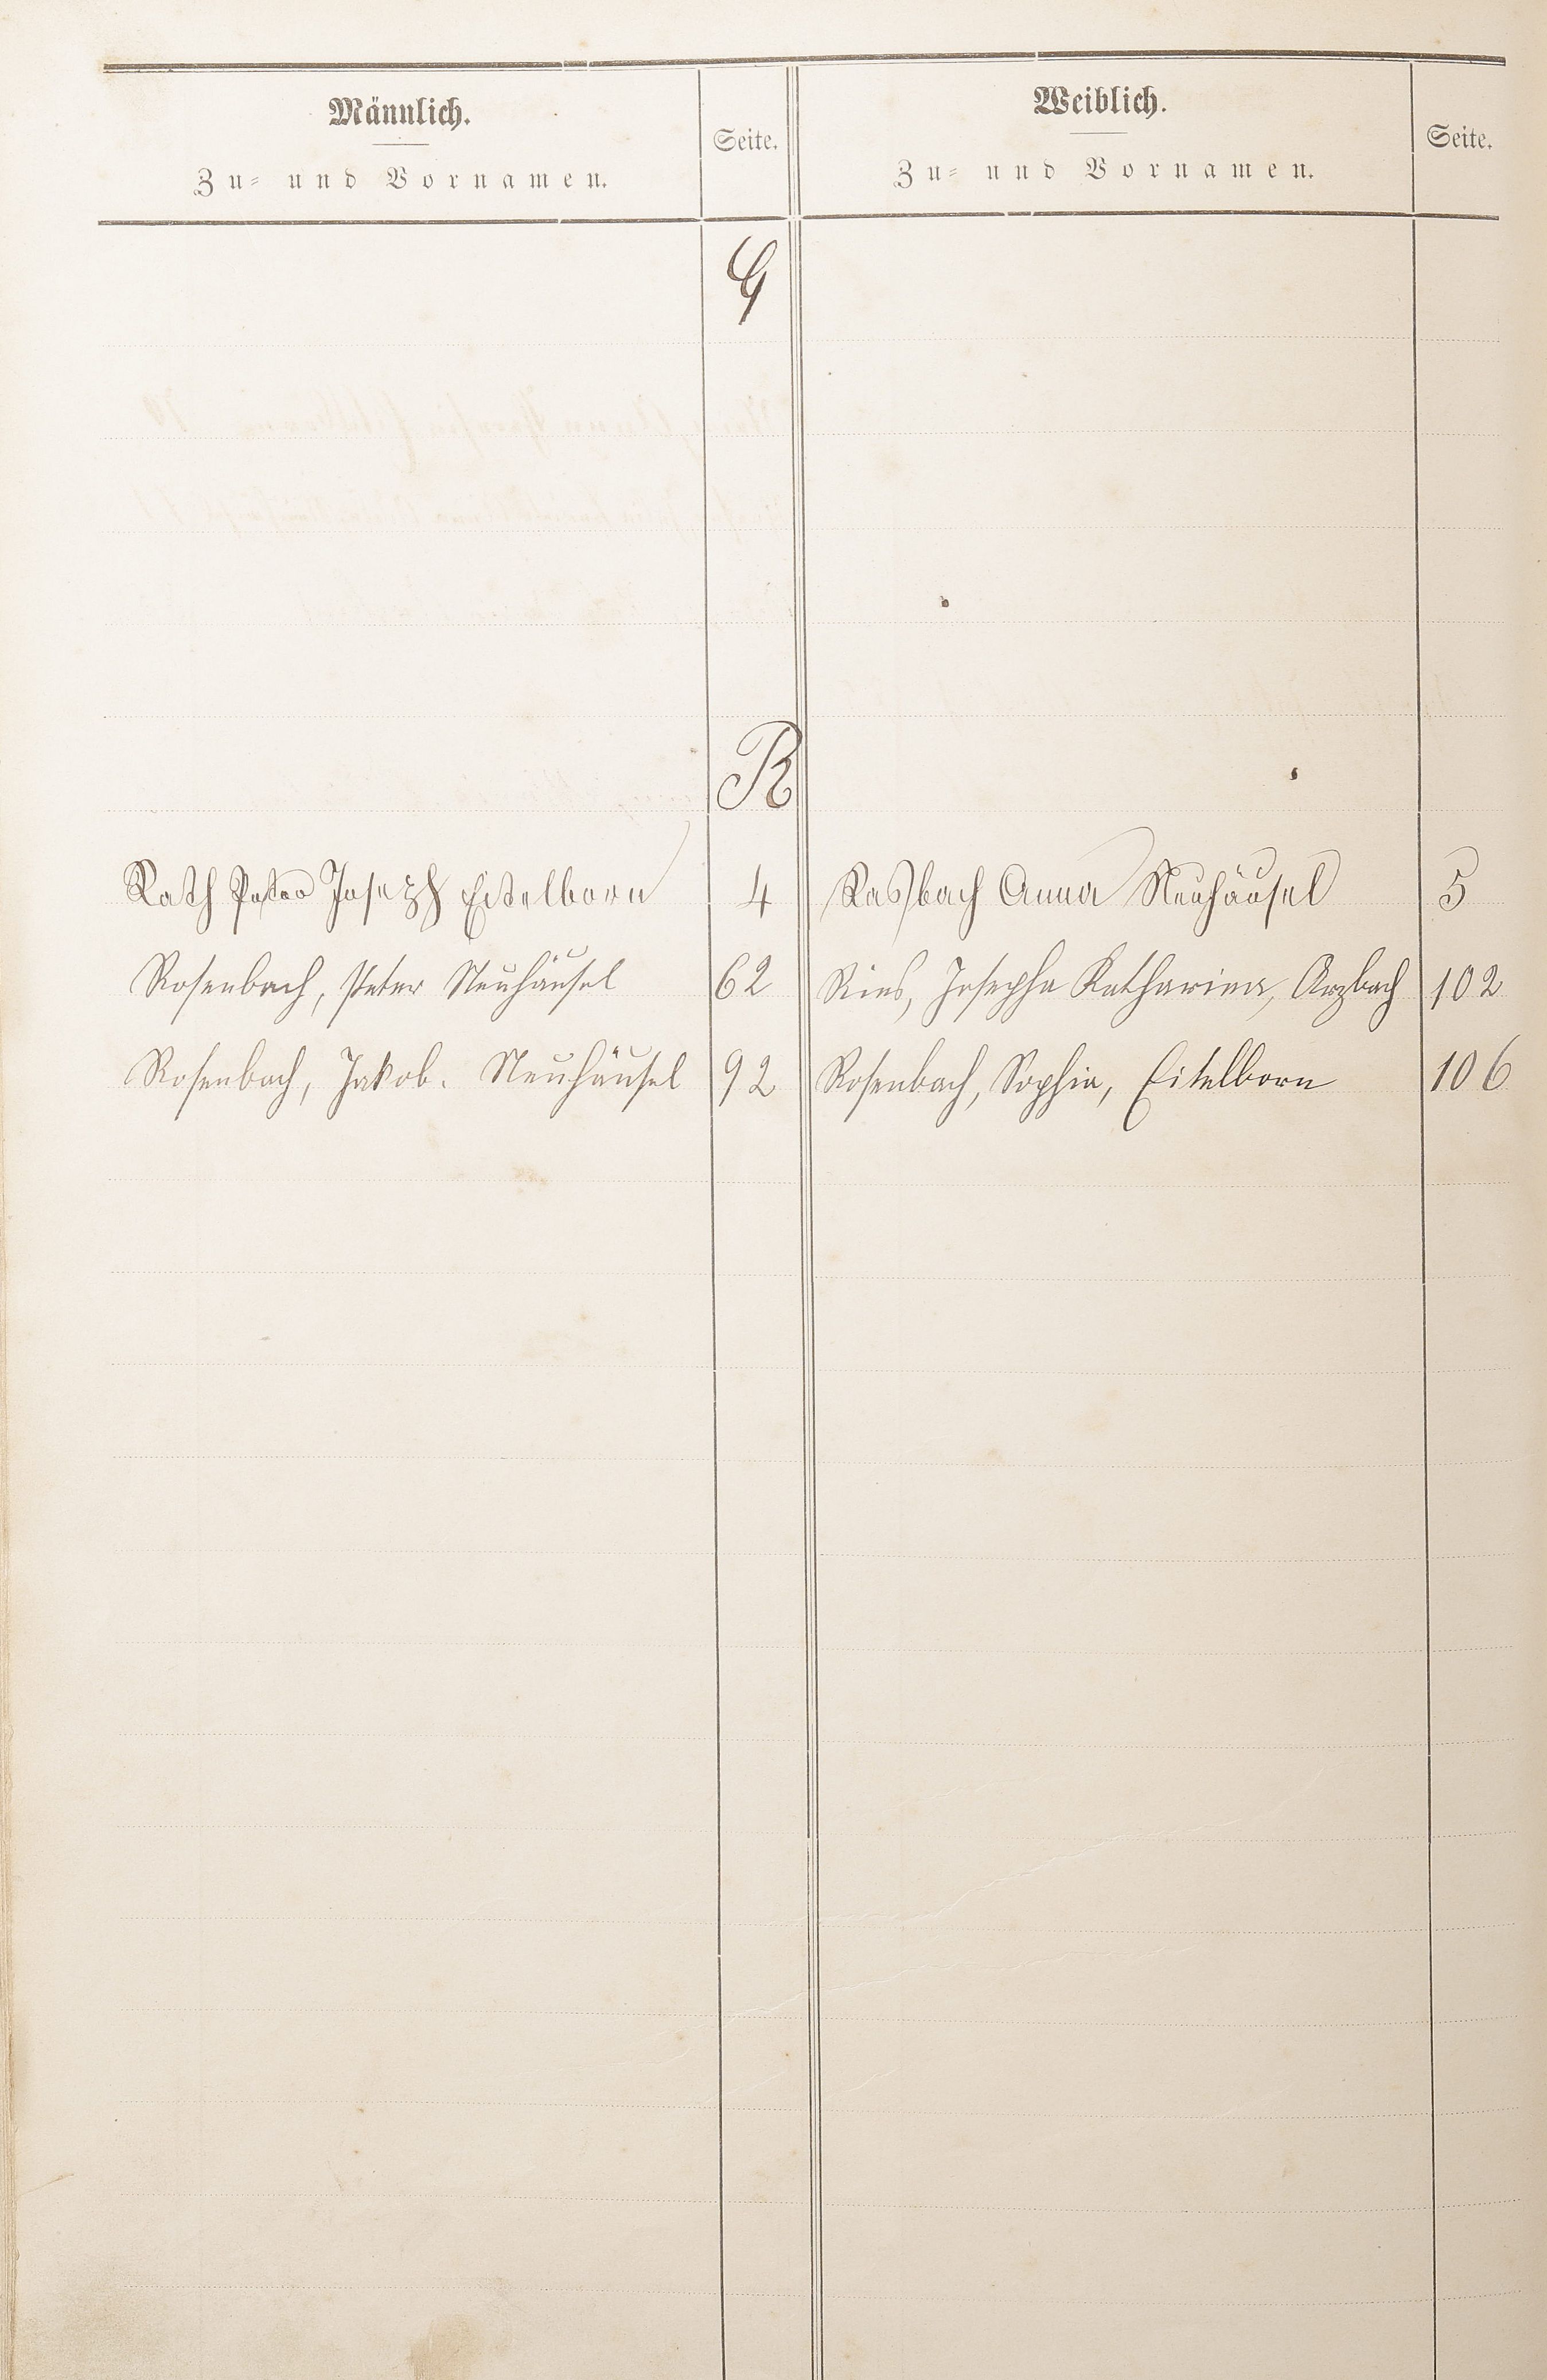 Männlich.
Zu- und Vornamen.
Seite.
Weiblich.
Zu- und Vornamen.
Seite.
Q
R
Rath Peter Joseph Eitelborn 4
Rasbach Anna Neuhäusel 5
Rosenbach, Peter Neuhäusel 62
Ries, Josepha Katharina, Arzbach 102
Rosenbach, Jakob. Neuhäusel 92
Rosenbach, Sophia, Eitelborn 106